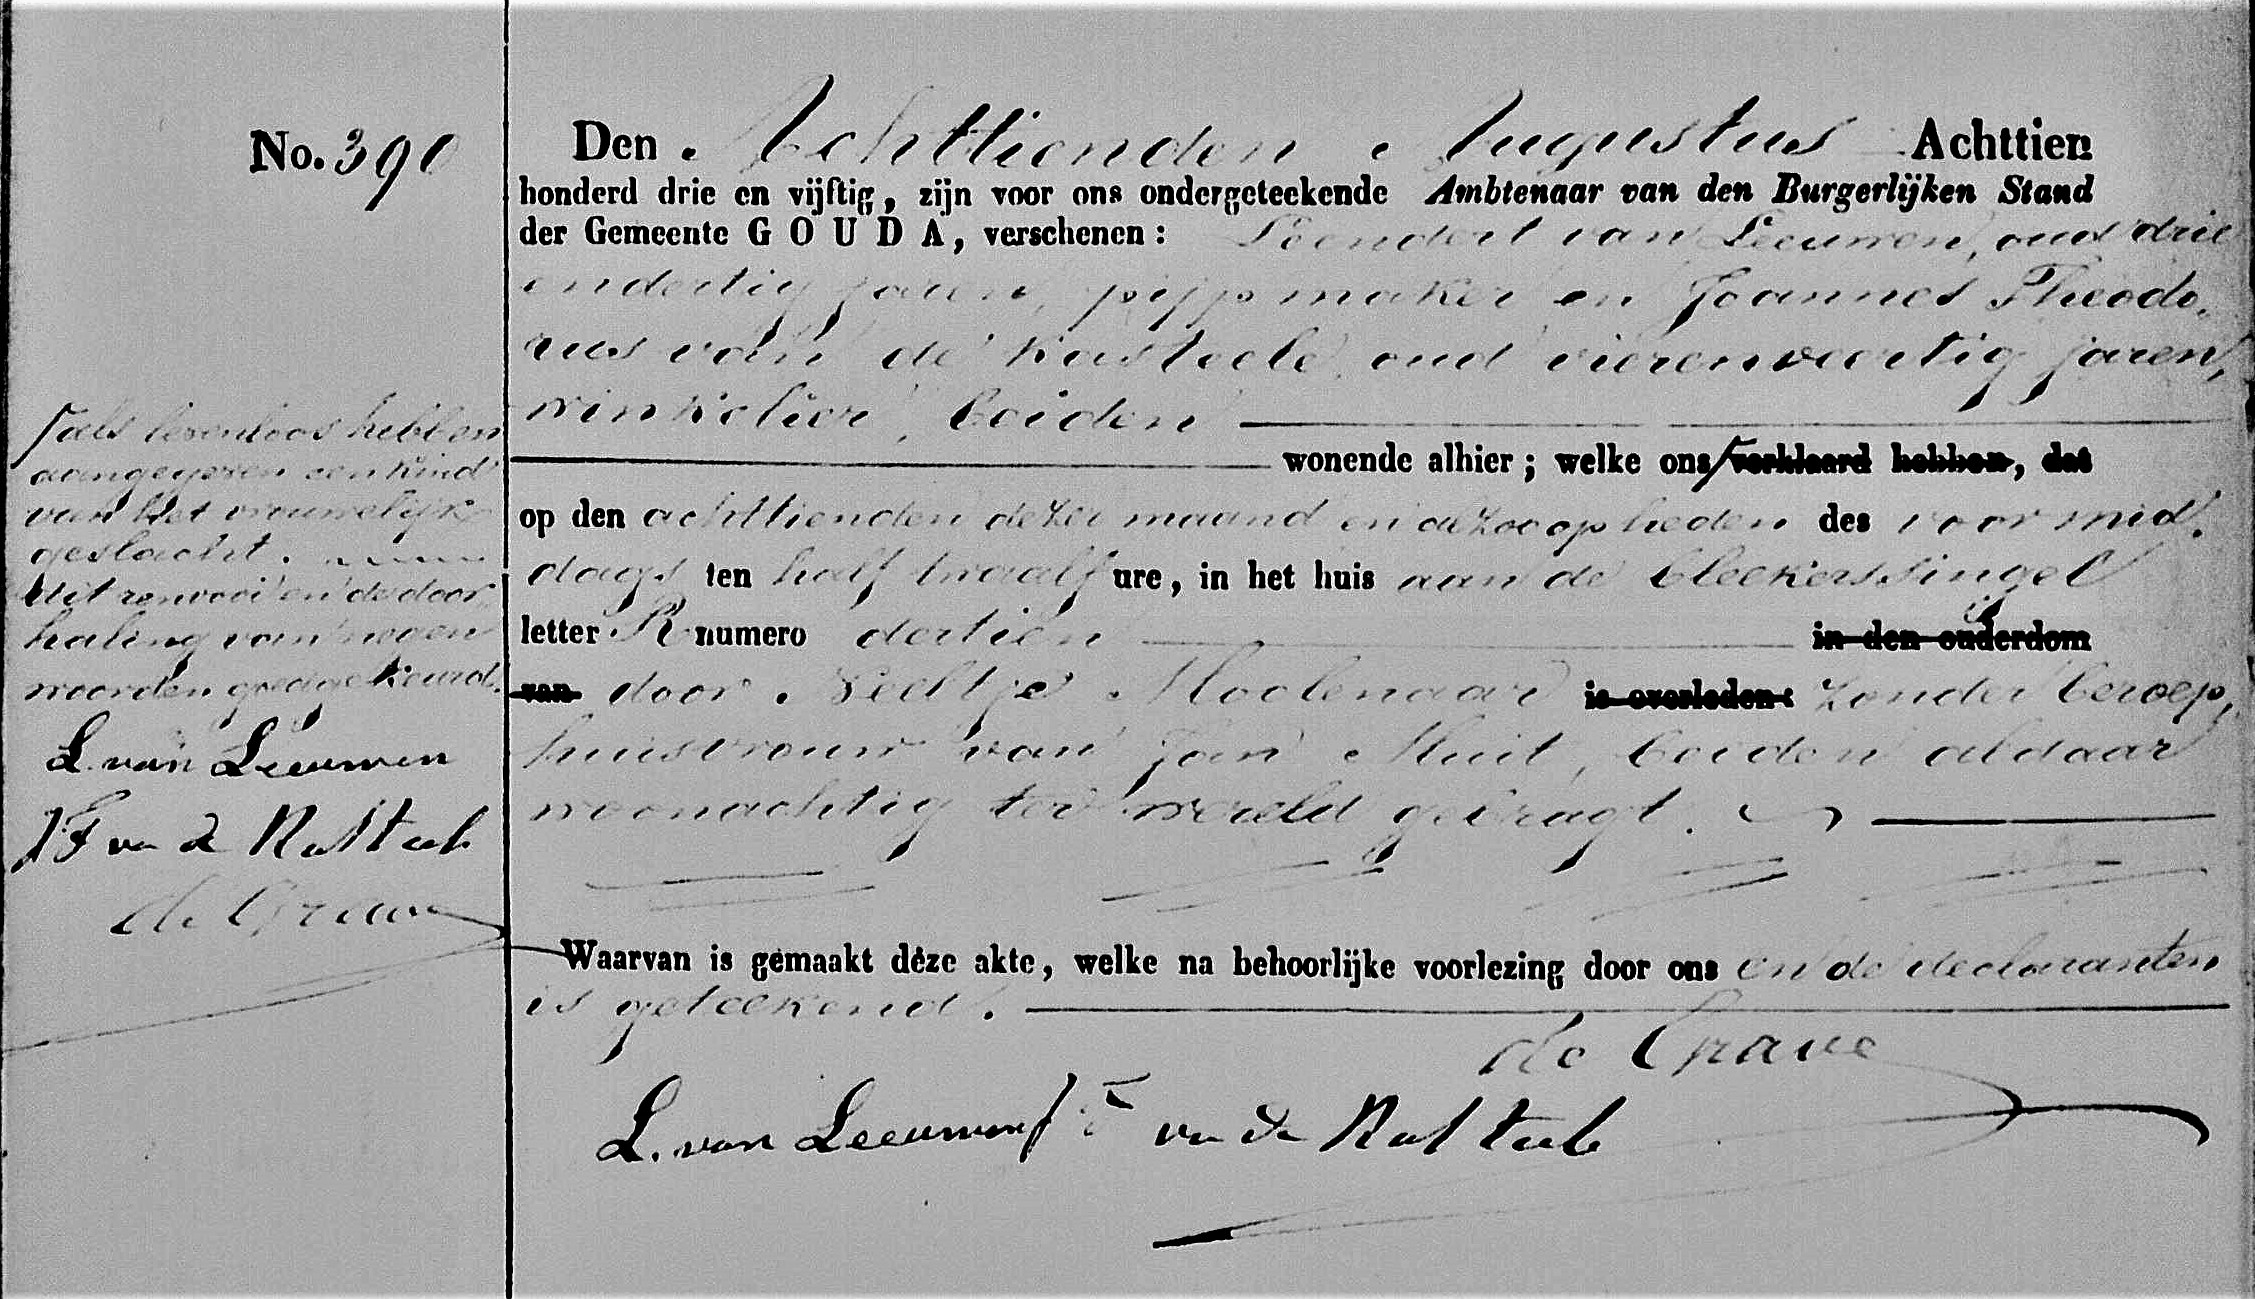 No. 390
Den Achttienden Augustus Achttien
honderd drie en vijftig, zijn voor ons ondergeteekende Ambtenaar van den Burgerlijken Stand
der Gemeente GOUDA, verschenen: Leendert van Leeuwen, oud drie
endertig jaren, pijpmaker en Joannes Theodo-
rus van de Kasteele oud vierenveertig jaren,
winkelier, beiden
wonende alhier; welke ons verklaard hebben, dat
op den achttienden dezer maand en alzoo op heden des voormid-
dags ten half twaalf ure, in het huis aan de bleekerssingel
letter R numero dertien in den ouderdom
van door Neeltje Moolenaar is overleden: zonder beroep,
huisvrouw van Jan Muit, beiden aldaar
woonachtig ter wereld gebragt.
Waarvan is gemaakt deze akte, welke na behoorlijke voorlezing door ons en de declaranten
is geteekend.
de Grave
L. van Leeuwen
van de Kasteele
als levenloos hebben
aangegeven een kind
van het vrouwelijk
geslacht.
dit renvooi en de door-
haling van negen
woorden goedgekeurd.
L. van Leeuwen
JT van de Kasteele
de Grave